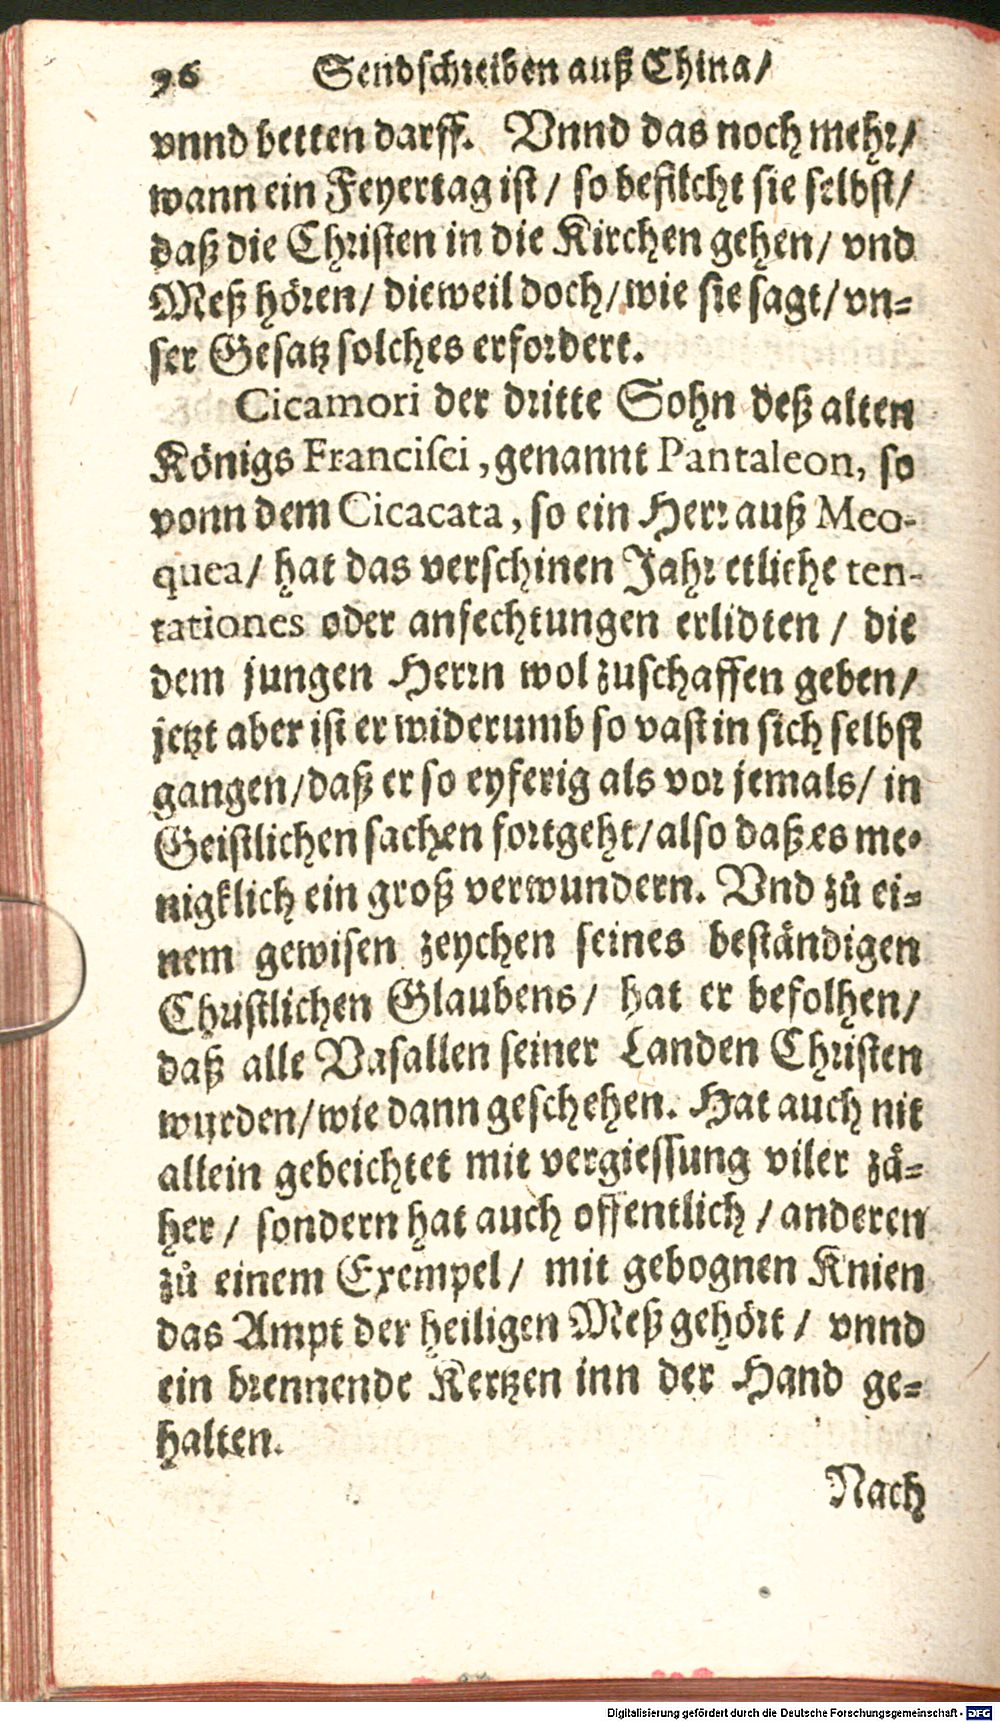 96 Sendschreiben auß China/
vnnd betten darff. Vnnd das noch mehr/
wann ein Feyertag ist/ so befilcht sie selbst/
daß die Christen in die Kirchen gehen/ vnd
Meß hören/ dieweil doch/ wie sie sagt/ vn-
ser Gesatz solches erfordert.
Cicamori der dritte Sohn deß alten
Königs Francisci, genannt Pantaleon, so
vonn dem Cicacata, so ein Herr auß Meo-
quea/ hat das verschinen Jahr etliche ten-
tationes oder anfechtungen erlidten/ die
dem jungen Herrn wol zuschaffen geben/
jetzt aber ist er widerumb so vast in sich selbst
gangen/ daß er so eyferig als vor jemals/ in
Geistlichen sachen fortgeht/ also daß es me-
nigklich ein groß verwundern. Vnd zů ei-
nem gewisen zeychen seines beständigen
Christlichen Glaubens/ hat er befolhen/
daß alle Vasallen seiner Landen Christen
wurden/ wie dann geschehen. Hat auch nit
allein gebeichtet mit vergiessung viler zä-
her/ sondern hat auch offentlich/ anderen
zů einem Exempel/ mit gebognen Knien
das Ampt der heiligen Meß gehört/ vnnd
ein brennende Kertzen inn der Hand ge-
halten.
Nach
Digitalisierung gefördert durch die Deutsche Forschungsgemeinschaft - DFG